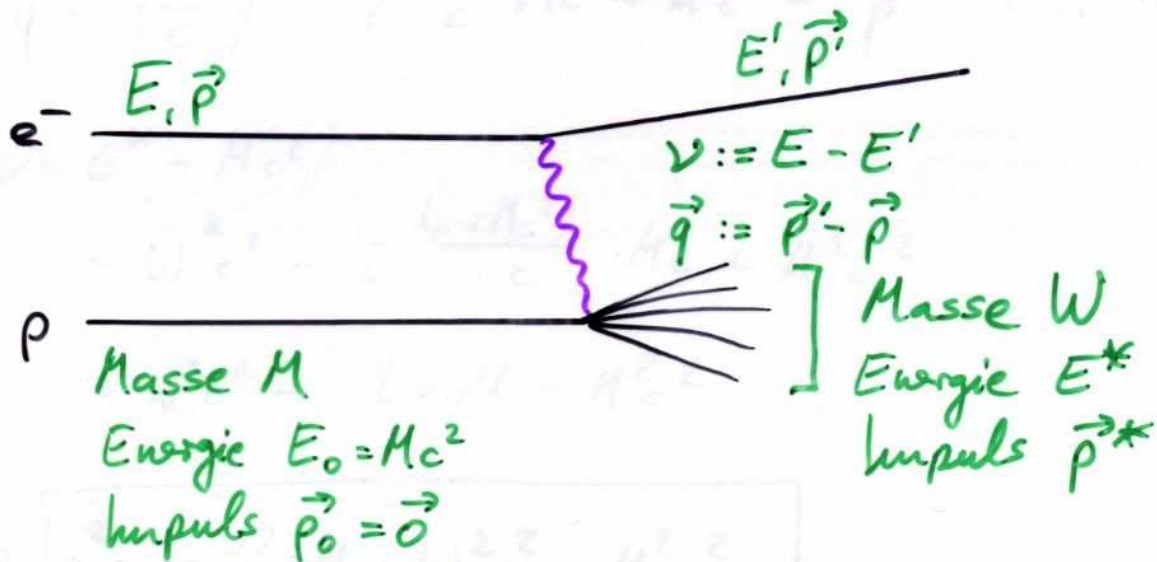 E', p⃗'
E, p⃗
e⁻
ν := E - E'
q⃗ := p⃗' - p⃗
p
Masse M
Energie E₀ = Mc²
Impuls p⃗₀ = 0⃗
Masse W
Energie E*
Impuls p⃗*